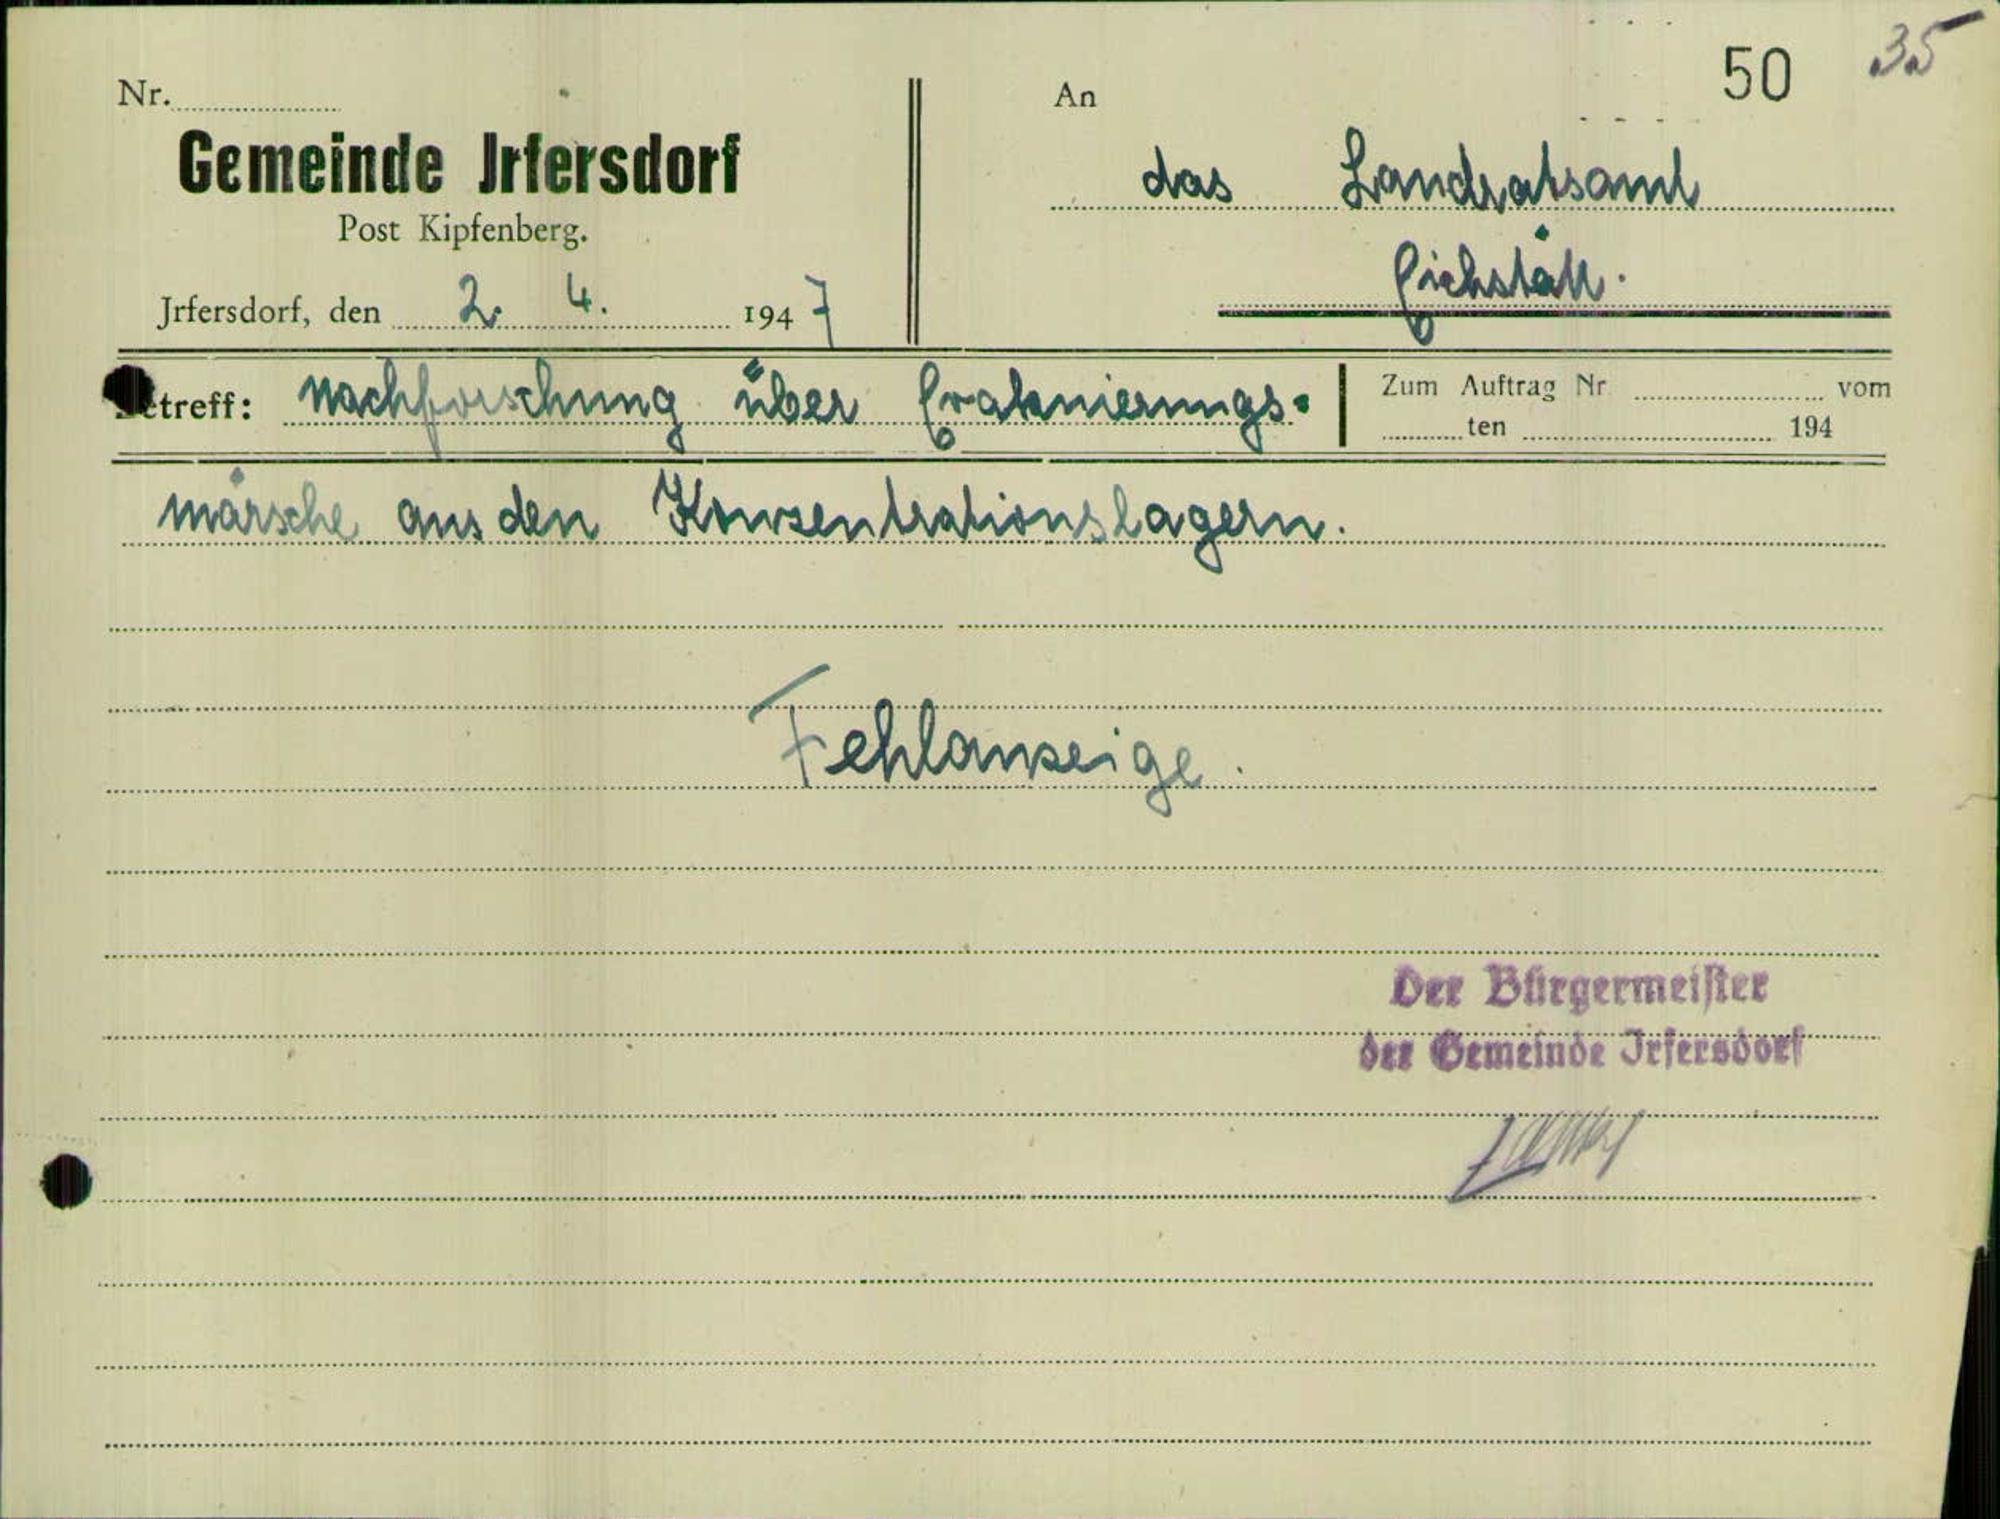 50 35
Nr.
Gemeinde Jrfersdorf
Post Kipfenberg.
Jrfersdorf, den 2. 4. 1947
An
das Landratsamt
Eichstätt.
Betreff: Nachforschung über Evakuierungs-
Zum Auftrag Nr vom
ten 194
märsche aus den Konzentrationslagern.
Fehlanzeige.
Der Bürgermeister
der Gemeinde Irfersdorf